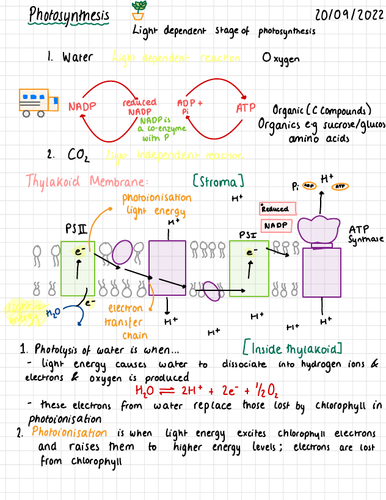 Photosynthesis
20/09/2022
Light dependent stage of photosynthesis
1. Water Light dependent reaction Oxygen
NADP
reduced
NADP
ADP +
Pi
ATP
NADP is
a co-enzyme
with P
Organic (C compounds)
Organics eg sucrose/glucose
amino acids
2. CO2 Light independent reaction
Thylakoid Membrane:
[Stroma]
photoionisation
light energy
H+
H+
Pi
ADP
ATP
Reduced
NADP
PSII
H+
PSI
ATP
Synthase
e-
e-
H2O
e-
electron
transfer
chain
H+
H+
H+
H+
H+
1. Photolysis of water is when...
[Inside thylakoid]
- light energy causes water to dissociate into hydrogen ions &
electrons & oxygen is produced
H2O ⇌ 2H+ + 2e- + 1/2O2
- these electrons from water replace those lost by chlorophyll in
photoionisation
2. Photoionisation is when light energy excites chlorophyll electrons
and raises them to higher energy levels; electrons are lost
from chlorophyll